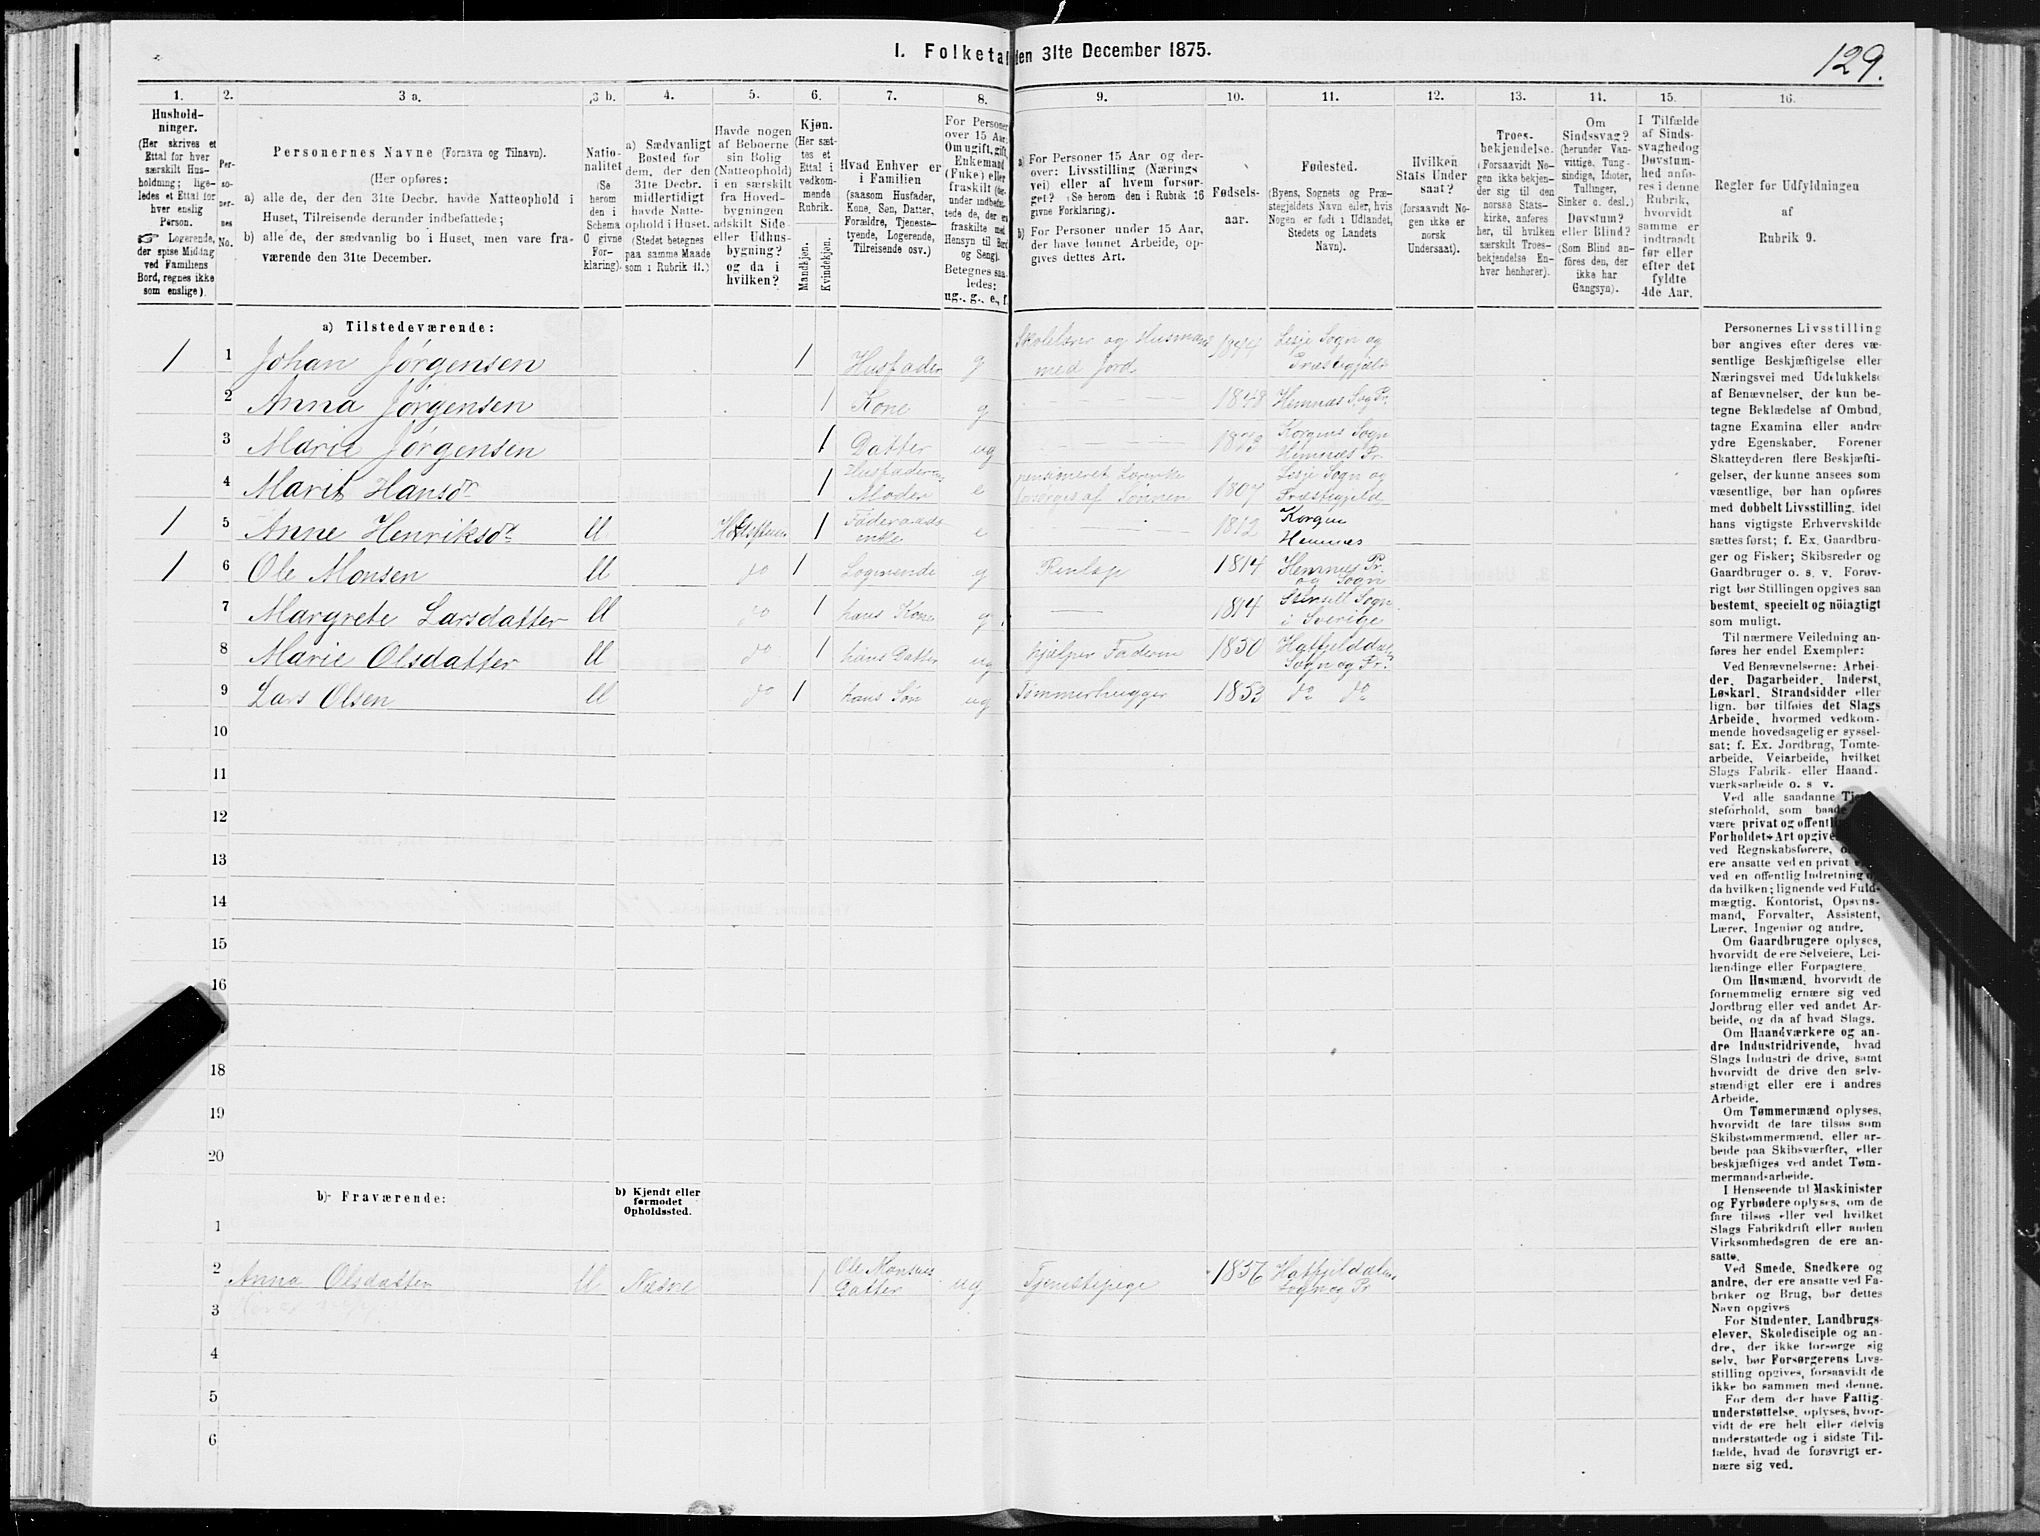 129.
I. Folketal den 31te December 1875.
1. 2. 3 a. 3 b. 4. 5. 6. 7. 8. 9. 10. 11. 12. 13. 14. 15. 16.
Hushold-
ninger.
(Her skrives et
Ettal for hver
særskilt Hus-
holdning; lige-
ledes et Ettal for
hver enslig
Person.
☞ Logerende,
der spise Middag
ved Familiens
Bord, regnes ikke
som enslige).
Per-
so-
ner-
nes
No.
Personernes Navne (Fornavn og Tilnavn).
(Her opføres:
a) alle de, der den 31te Decbr. havde Natteophold i
Huset, Tilreisende derunder indbefattede;
b) alle de, der sædvanlig bo i Huset, men vare fra-
værende den 31te December.
Natio-
nalitet
(Se
herom
den i
Schema
C givne
For-
klaring).
a) Sædvanligt
Bosted for
dem, der den
31te Decbr.
midlertidigt
havde Natte-
ophold i Huset.
(Stedet betegnes
paa samme Maade
som i Rubrik 11.)
Havde nogen
af Beboerne
sin Bolig
(Natteophold)
i en særskilt
fra Hoved-
bygningen
adskilt Side-
eller Udhus-
bygning?
og da i
hvilken?
Kjøn.
(Her sæt-
tes et
Ettal i
vedkom-
mende
Rubrik.
Mandkjøn.
Kvindekjøn.
Hvad Enhver er
i Familien
(saasom Husfader,
Kone, Søn, Datter,
Forældre, Tjeneste-
tyende, Logerende,
Tilreisende osv.)
For Personer
over 15 Aar:
Om ugift, gift,
Enkemand
(Enke) eller
fraskilt (der-
under indbefat-
tede de, der ere
fraskilte med
Hensyn til Bord
og Seng).
Betegnes saa-
ledes:
ug., g., e., f.
a) For Personer 15 Aar og der-
over: Livsstilling (Nærings-
vei) eller af hvem forsør-
get? (Se herom den i Rubrik 16
givne Forklaring).
b) For Personer under 15 Aar,
der have lønnet Arbeide, op-
gives dettes Art.
Fødsels-
aar.
Fødested.
(Byens, Sognets og Præ-
stegjeldets Navn eller, hvis
Nogen er født i Udlandet,
Stedets og Landets
Navn).
Hvilken
Stats Under
saat?
(forsaavidt No-
gen ikke er
norsk
Undersaat).
Troes-
bekjendelse.
(Forsaavidt No-
gen ikke bekjen-
der sig til den
norske Stats-
kirke, anføres
her, til hvilken
særskilt Troes-
bekjendelse En-
hver henhører).
Om
Sindssvag?
(herunder Van-
vittige, Tung-
sindige, Idioter,
Tullinger,
Sinker o. desl.)
Døvstum?
eller Blind?
(Som Blind an-
føres den, der
ikke har
Gangsyn).
I Tilfælde
af Sinds-
svaghed og
Døvstum-
hed anfø-
res i denne
Rubrik,
hvorvidt
samme er
indtraadt
før eller
efter det
fyldte
4de Aar.
Regler før Udfyldningen
af
Rubrik 9.
a) Tilstedeværende:
1 1 Johan Jørgensen 1 Husfader g Skolelærer og Husmand med Jord 1844 Lesje Sogn og Præstegjeld
2 Anna Jørgensen 1 Kone g 1848 Hemnæs S. og Pr.
3 Marie Jørgensen 1 Datter ug 1873 Korgens Sogn Hemnæs Pr.
4 Marit Hansdr 1 Husfaderens Moder e pensioneret Lærerenke forsørges af Sønnen 1807 Lesje Sogn og Præstegjeld
1 5 Anne Henriksdr U 1 Føderaads enke e 1812 Korgen Hemnæs
1 6 Ole Monsen U do 1 Logerende g 1814 Hemnæs Pr. og Sogn
7 Margrete Larsdatter U do 1 hans Kone g. 1814 Stensele Sogn i Sverige
8 Marie Olsdatter U do 1 hans Datter ug hjælper Faderen 1850 Hatfjelddals Sogn og Pr.
9 Lars Olsen U do 1 hans Søn ug Tømmerhugger 1853 do do
10
11
12
13
14
15
16
18
19
20
b) Fraværende:
b) Kjendt eller
formodet
Opholdssted.
1
2 Anna Olsdatter U Næsne 1 Ole Monsens Datter ug Tjenestepige 1856 Hatfjelddalens Sogn og Pr
3
4
5
6
Personernes Livsstilling
bør angives efter deres væ-
sentlige Beskjæftigelse eller
Næringsvei med Udelukkelse
af Benævnelser, der kun be-
tegne Beklædelse af Ombud,
tagne Examina eller andre
ydre Egenskaber. Forener
Skatteyderen flere Beskjæfti-
gelser, der kunne ansees som
væsentlige, bør han opføres
med dobbelt Livsstilling, idet
hans vigtigste Erhvervskilde
sættes først; f. Ex. Gaardbru-
ger og Fisker; Skibsreder og
Gaardbruger o. s. v. Forøv-
rigt bør Stillingen opgives saa
bestemt, specielt og nöiagtigt
som muligt.
Til nærmere Veiledning an-
føres her endel Exempler:
Ved Benævnelserne: Arbei-
der, Dagarbeider, Inderst,
Løskarl, Strandsidder eller
lign. bør tilføies det Slags
Arbeide, hvormed vedkom-
mende hovedsagelig er syssel-
sat; f. Ex. Jordbrug, Tomte-
arbeide, Veiarbeide, hvilket
Slags Fabrik- eller Haand-
værksarbeide o. s. v.
Ved alle saadanne
steforhold, som baade
være privat og
Forholdets Art
ved Regnskabsførere,
ere ansatte ved en privat
ved en offentlig Indretning
da hvilken; lignende ved Fuld-
mægtig, Kontorist, Opsyns-
mand, Forvalter, Assistent,
Lærer, Ingeniør og andre.
Om Gaardbrugere oplyses,
hvorvidt de ere Selveiere, Lei-
lændinge eller Forpagtere.
Om Husmænd, hvorvidt de
fornemmelig ernære sig ved
Jordbrug eller ved andet Ar-
beide, og da af hvad Slags.
Om Haandværkere og an-
dre Industridrivende, hvad
Slags Industri de drive, samt
hvorvidt de drive den selv-
stændigt eller ere i andres
Arbeide.
Om Tømmermænd oplyses,
hvorvidt de fare tilsøs som
Skibstømmermænd, eller ar-
beide paa Skibsværfter, eller
beskjæftiges ved andet Tøm-
mermandsarbeide.
I Henseende til Maskinister
og Fyrbødere oplyses, om de
fare tilsøs eller ved hvilket
Slags Fabrikdrift eller anden
Virksomhedsgren de ere an-
satte.
Ved Smede, Snedkere og
andre, der ere ansatte ved Fa-
briker og Brug, bør dettes
Navn opgives
For Studenter, Landbrugs-
elever, Skoledisciple og an-
dre, der ikke forsørge sig
selv, bør Forsørgerens Livs-
stilling opgives, forsaavidt de
ikke bo sammen med denne.
For dem der have Fattig-
understøttelse, oplyses, hvor-
vidt de ere helt eller delvis
understøttede og i sidste Til-
fælde, hvad de forøvrigt er-
nære sig ved.